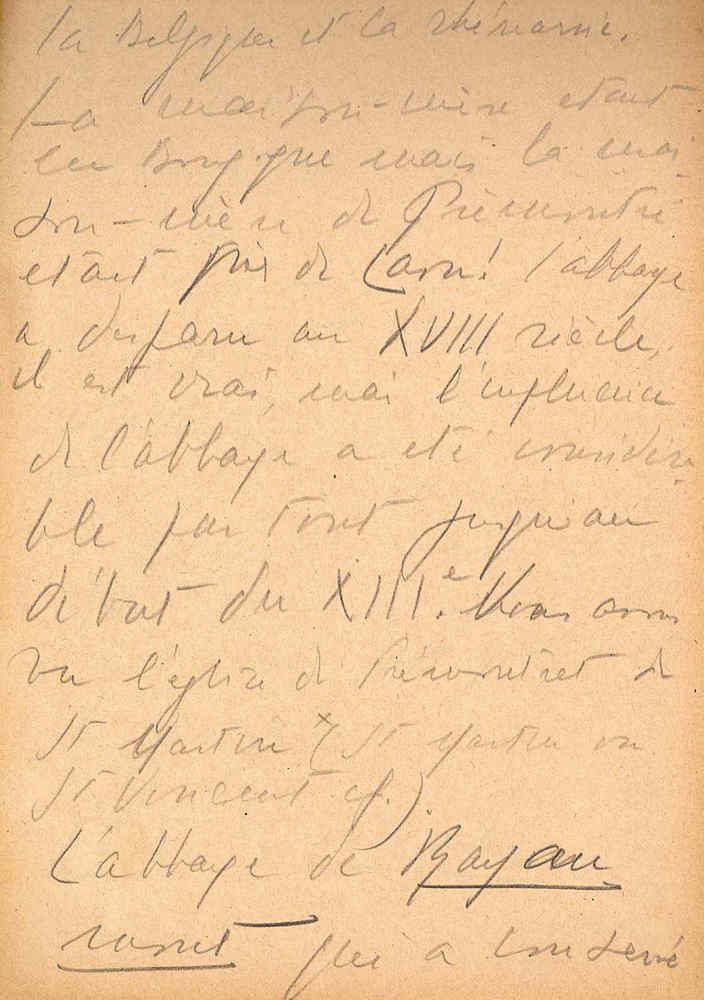 la Belgique et la Rhénanie.
La maison-mère étant
en Bourgogne mais la mai-
son-mère de Prémontré
était près de Laon! l'abbaye
a disparu au XVIII siècle,
il est vrai, mais l'influence
de l'abbaye a été considéra-
ble partout jusqu'au
début du XIIIe. Nous avons
vu l'église de Prémontret de
St Martin x (St Martin ou
St Vincent cf.)
L'abbaye de Royau
mont qui a conservé